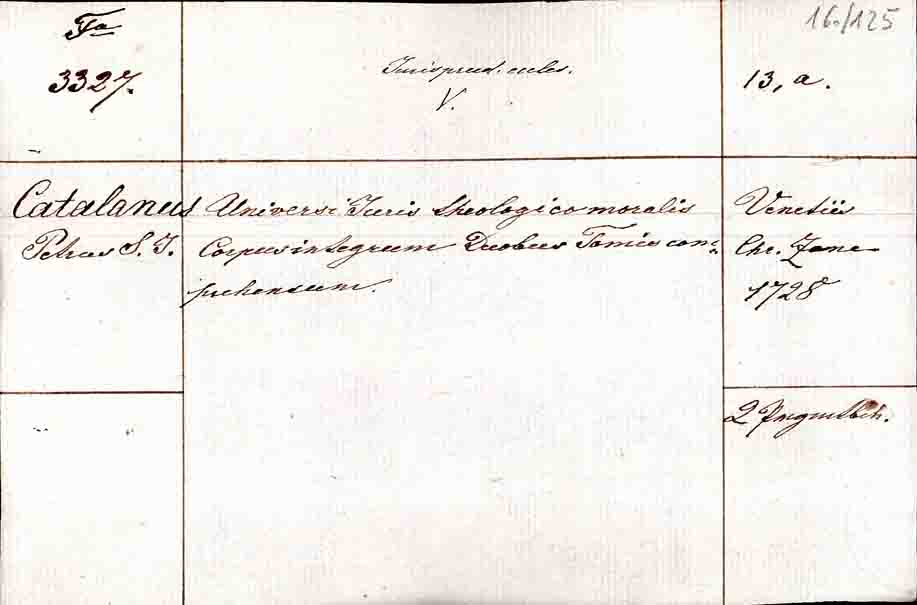 Fa
3327.
Jurisprud. eccles.
V.
16./125
13, a.
Catalanus
Petrus S. J.
Universi Juris theologico moralis
Corpus integrum Duobus Tomis com=
prehensum.
Venetiis
Chr. Zane
1728
2 Prgmtbde.